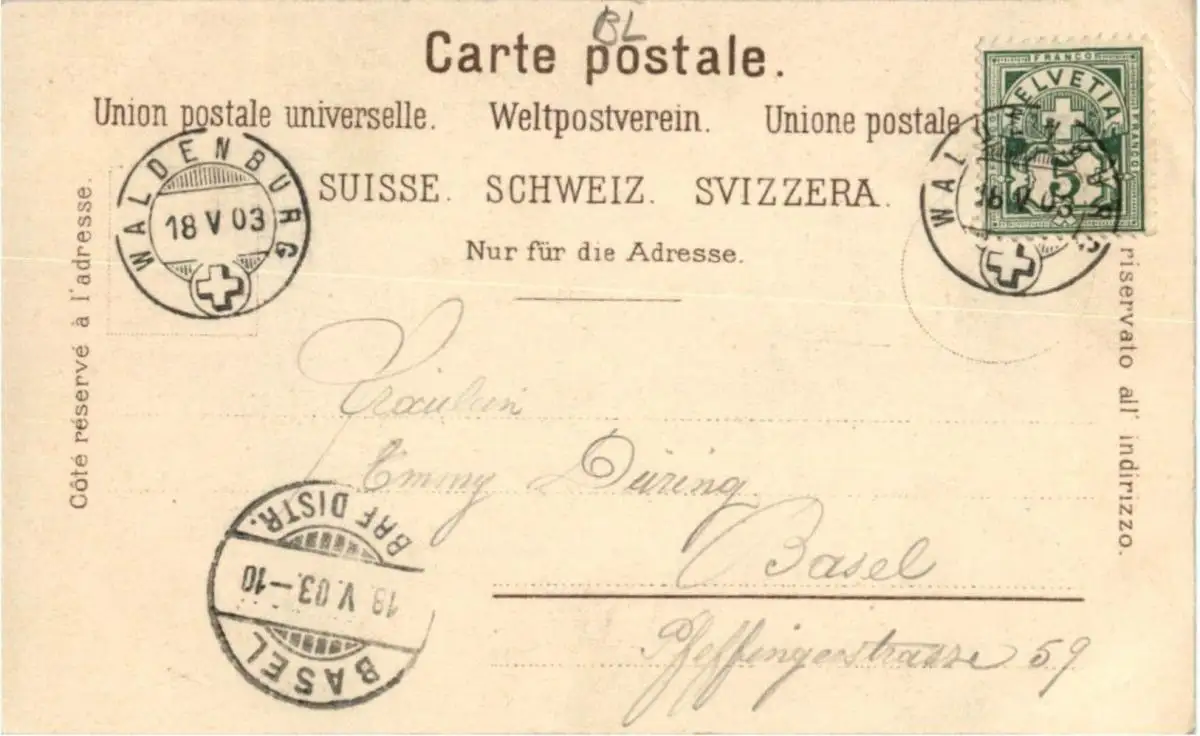 BL
Carte postale.
Union postale universelle. Weltpostverein. Unione postale
SUISSE. SCHWEIZ. SVIZZERA.
Nur für die Adresse.
Côté réservé à l'adresse.
riservato all' indirizzo.
WALDENBURG
18 V 03
FRANCO
HELVETIA
FRANCO
5
WALDENBURG
18 V 03
Fräulein
Emmy Düring
Basel
Pfeffingerstrasse 59
BASEL
18. V. 03.-10
BRF DISTR.